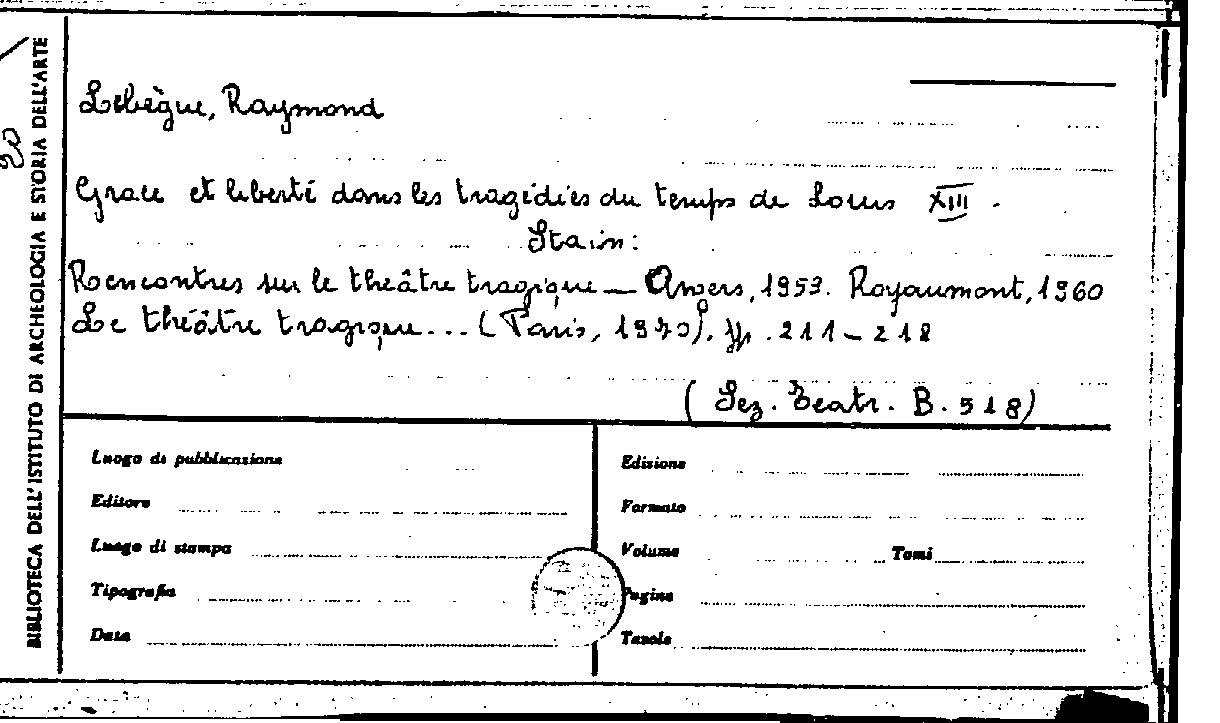 BIBLIOTECA DELL'ISTITUTO DI ARCHEOLOGIA E STORIA DELL'ARTE
20
Lebègue, Raymond
Grace et liberté dans les tragédies du temps de Louis XIII.
Sta in:
Rencontres sur le théâtre tragique — Angers, 1953. Royaumont, 1960
Le théâtre tragique... (Paris, 1970). pp. 211-218
(Sez. Teatr. B. 518)
Luogo di pubblicazione
Editore
Luogo di stampa
Tipografia
Data
Edizione
Formato
Volume Tomi
Pagine
Tavole